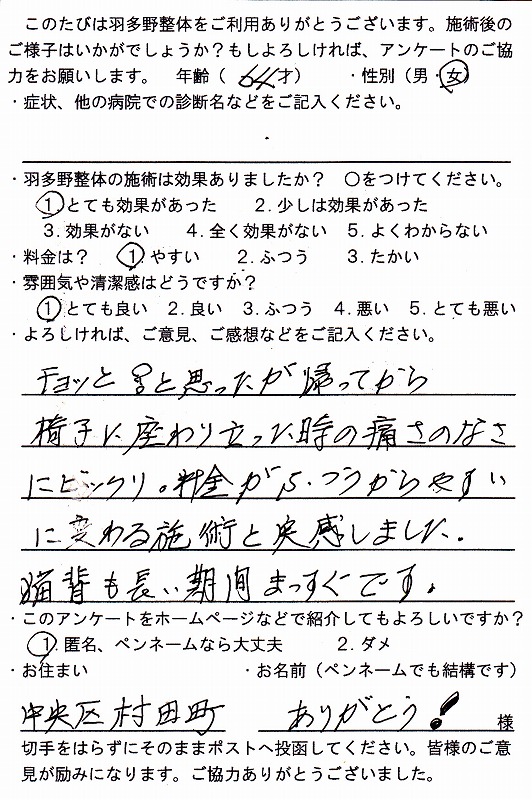 このたびは羽多野整体をご利用ありがとうございます。施術後の
ご様子はいかがでしょうか？もしよろしければ、アンケートのご協
力をお願いします。　年齢（ 64才）　・性別（男・女）
・症状、他の病院での診断名などをご記入ください。
・羽多野整体の施術は効果ありましたか？　○をつけてください。
1 とても効果があった　2. 少しは効果があった
3. 効果がない　4. 全く効果がない　5. よくわからない
・料金は？　1 やすい　2. ふつう　3. たかい
・雰囲気や清潔感はどうですか？
1 とても良い　2. 良い　3. ふつう　4. 悪い　5. とても悪い
・よろしければ、ご意見、ご感想などをご記入ください。
チョッと と思ったが帰ってから
椅子に座わり立った時の痛さのなさ
にビックリ。料金がふつうからやすい
に変わる施術と実感しました.
猫背も長い期間まっすぐです。
・このアンケートをホームページなどで紹介してもよろしいですか？
1. 匿名、ペンネームなら大丈夫　2. ダメ
・お住まい　・お名前（ペンネームでも結構です）
中央区村田町　ありがとう！　様
切手をはらずにそのままポストへ投函してください。皆様のご意
見が励みになります。ご協力ありがとうございました。